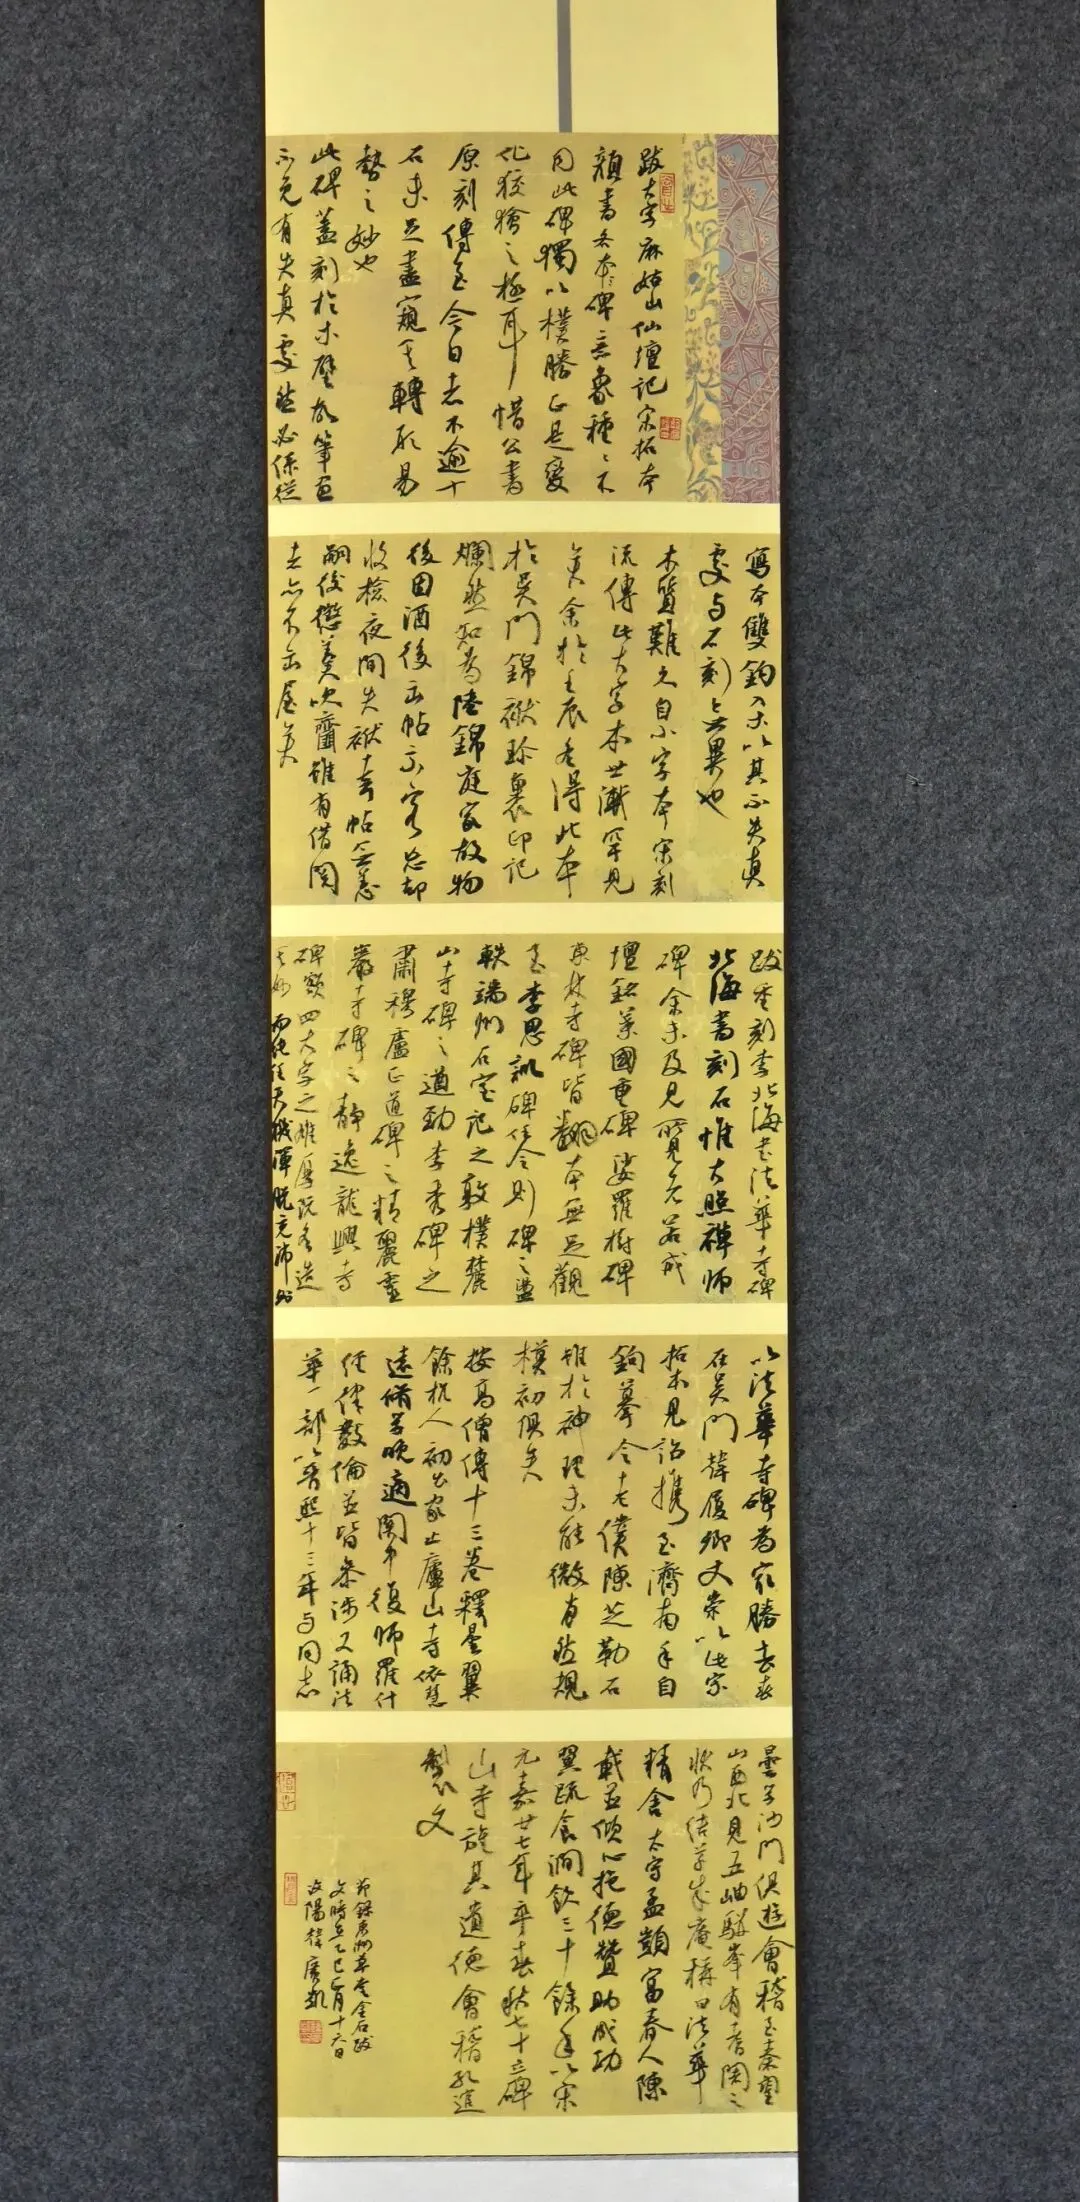 跋大字麻姑山仙壇記宋拓本
顏書各本碑意象種種不
同此碑獨以樸勝正是變
化狡獪之極耳惜公書
原刻傳至今日者不逾十
石未足盡窺其轉形易
勢之妙也
此碑蓋刻於木壁故筆畫
不免有失真處然必係從
寫本雙鉤入木以其不失真
處與石刻無異也
木質難久自小字本宋刻
流傳此大字本世漸罕見
矣余於壬辰冬得此本
於吳門錦襆珍裹印記
爛然知為陸錦庭家故物
後因酒後出帖示客忘却
收檢夜間失襆幸帖無恙
嗣後懲羹吹齏雖有借閱
者亦不出屋矣
跋重刻李北海書法華寺碑
北海書刻石惟大照禪師
碑余未及見所見者若戒
壇銘葉國重碑娑羅樹碑
東林寺碑皆翻本無足觀
至李思訓碑任令則碑之盪
軼端州石室記之敦樸麓
山寺碑之遒勁李秀碑之
肅穆盧正道碑之精麗靈
巖寺碑之靜逸龍興寺
碑額四大字之雄厚既各造
其妙而純任天機渾脫充沛則
以法華寺碑為最勝去春
在吳門韓履卿丈崇以此宗
拓本見詒攜至濟南手自
鉤摹令老僕陳芝勒石
雖於神理未能微肖然規
模初俱矣
按高僧傳十三卷釋曇翼
餘杭人初出家止廬山寺依慧
遠修學晚適關中復師羅什
經律數倫並皆參涉又誦法
華一部以晉熙十三年與同志
曇學沙門俱遊會稽至秦望
山西北見五岫駢峯有耆闍之
狀乃結草成庵稱曰法華
精舍太守孟顗富春人陳
載並傾心挹德贊助成功
翼蔬食澗飲三十餘年以宋
元嘉廿七年卒春秋七十立碑
山寺旌其遺德會稽孔逭
製文
節錄東洲草堂金石跋
文時在乙巳正月十六日
汝陽韓